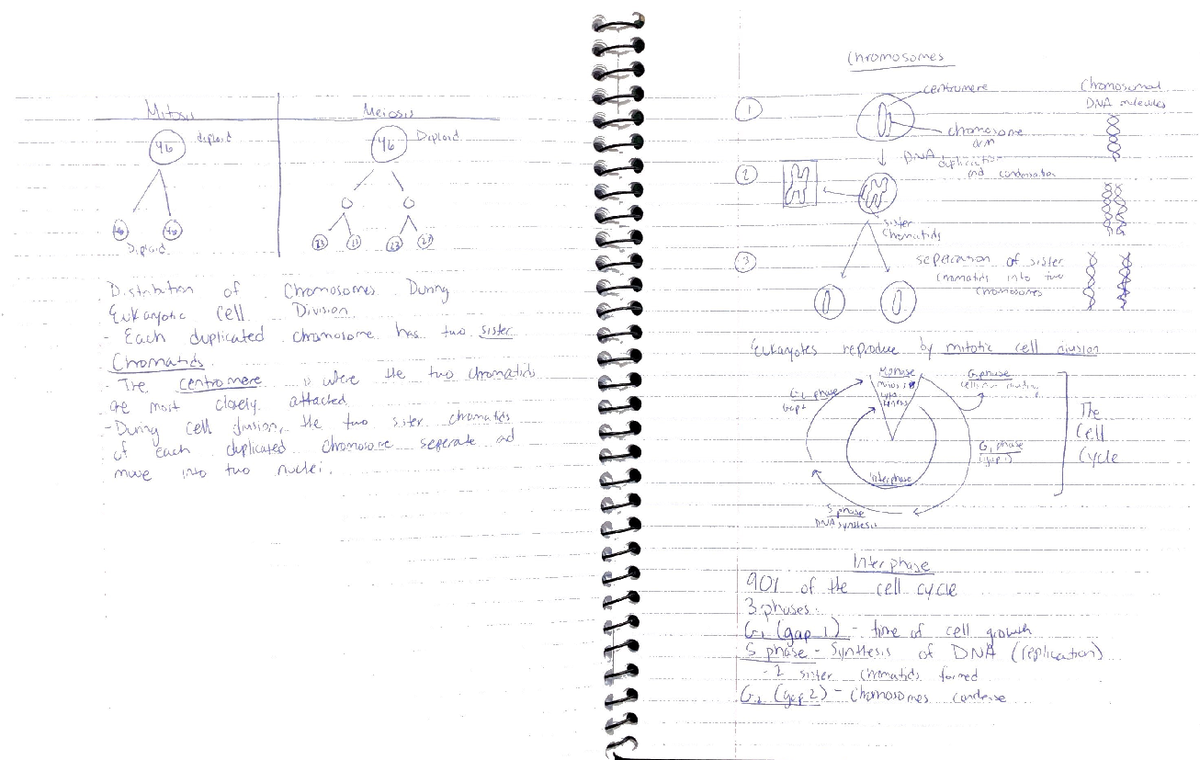 Meiosis
46 Diploid
46 Diploid
23 23
Distribution of Chromosomes During
Eukaryotic cell Division
- Each duplicated chromosome has two sister
Chromatids
- The centromere is where the two chromatids
are most closely attached
- During cell division, the two sister chromatids
of each duplicated chromosome seperate and
move into two nuclei
Chromosomes
1
centromere
chromosome
arm
Chromosomal
DNA molecules
DNA
duplication
and condensation
2
sister
chromatids
3
seperation of sister
chromatids into two
chromosomes
Eukaryotes by mitotic cell division
G1 phase
S phase
DNA synthesis
Interphase
The
Cell
Cycle
Interphase
90% of the cell cycle
3 phases:
G1 (gap 1) - time of cell growth
S phase - Synthesis of DNA (replication)
- 2 sister chromatids formed
G2 (gap 2) - Chromosomes condense